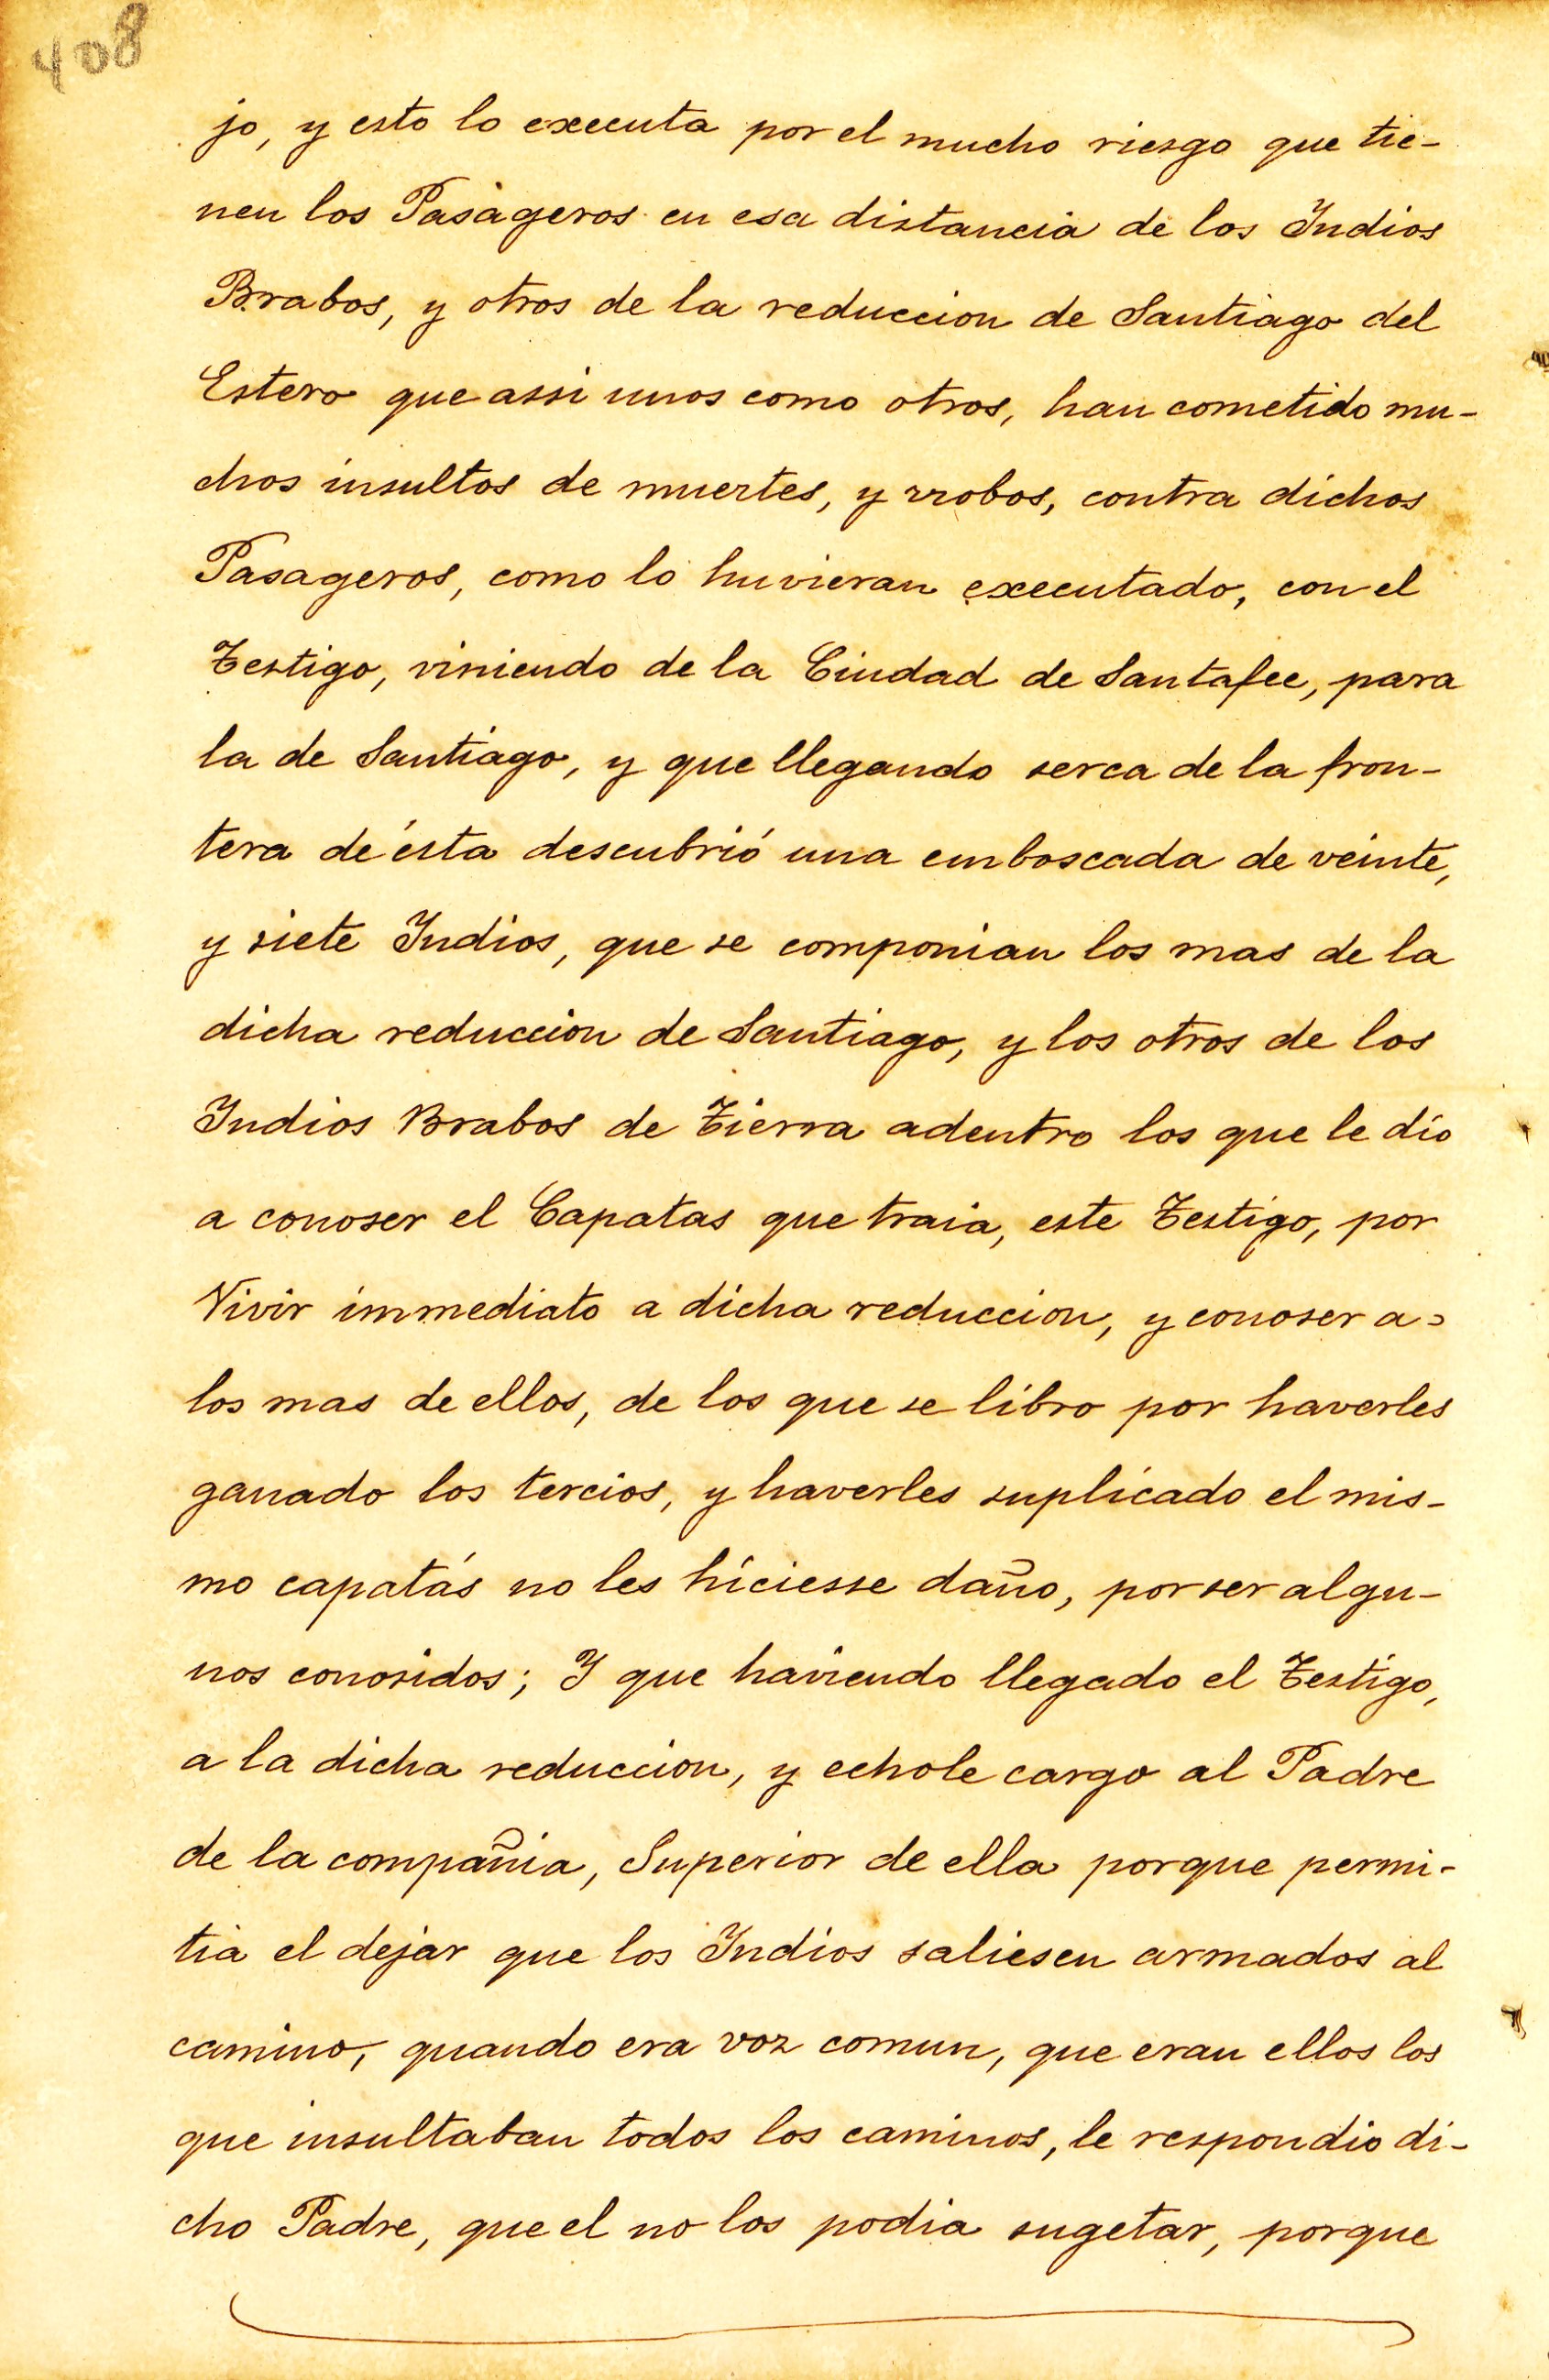 408
jo, y esto lo executa por el mucho riesgo que tie-
nen los Pasageros en esa distancia de los Indios
Brabos, y otros de la reduccion de Santiago del
Estero que assi unos como otros, han cometido mu-
chos insultos de muertes, y rrobos, contra dichos
Pasageros, como lo huvieran executado, con el
Testigo, viniendo de la Ciudad de Santafee, para
la de Santiago, y que llegando serca de la fron-
tera de ésta descubrió una emboscada de veinte,
y siete Indios, que se componian los mas de la
dicha reduccion de Santiago, y los otros de los
Indios Brabos de Tierra adentro los que le dio
a conoser el Capatas que traia, este Testigo, por
Vivir immediato a dicha reduccion, y conoser a=
los mas de ellos, de los que se libro por haverles
ganado los tercios, y haverles suplicado el mis-
mo capatás no les hiciesse daño, por ser algu-
nos conosidos; Y que haviendo llegado el Testigo,
a la dicha reduccion, y echole cargo al Padre
de la compañia, Superior de ella porque permi-
tia el dejar que los Indios saliesen armados al
camino, quando era voz comun, que eran ellos los
que insultaban todos los caminos, le respondio di-
cho Padre, que el no los podia sugetar, porque